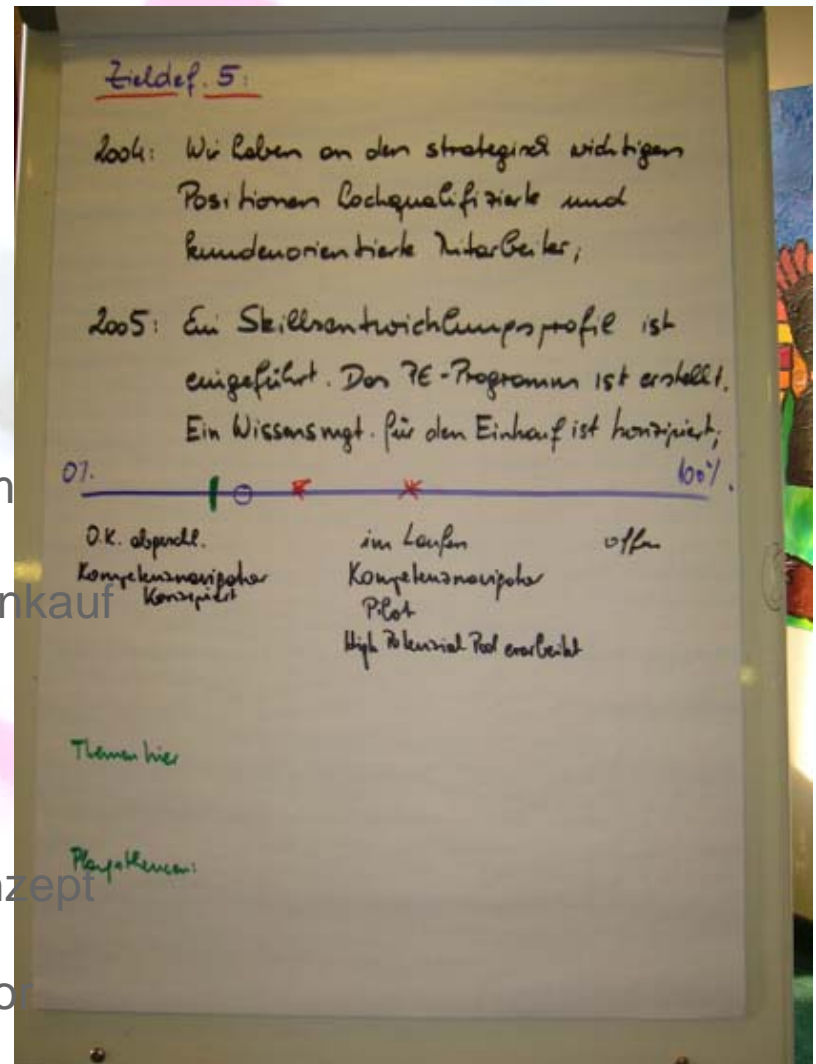 Zieldef. 5:
2004: Wir haben an den strategisch wichtigen
Positionen hochqualifizierte und
kundenorientierte Mitarbeiter;
2005: Ein Skillsentwicklungsprofil ist
eingeführt. Das PE-Programm ist erstellt.
Ein Wissensmgt. für den Einkauf ist konzipiert;
0%. 100%.
O.K. abgeschl. im Laufen offen
Kompetenznavigator Kompetenznavigator
Konzipiert Pilot
High Potenzial Pool erarbeitet
nkauf
Themen hier
zept
or